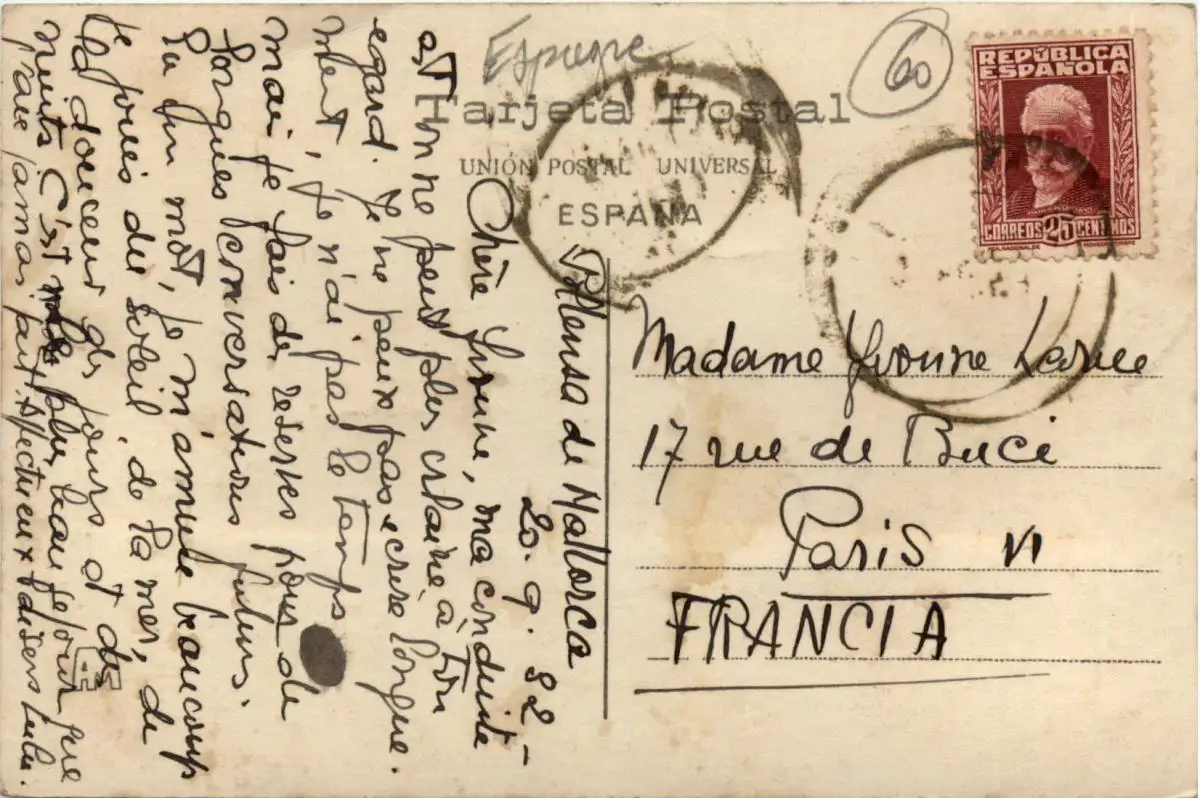 Espagne
60
Tarjeta Postal
UNIÓN POSTAL UNIVERSAL
ESPAÑA
REPÚBLICA
ESPAÑOLA
CORREOS 25 CENTIMOS
Pollensa de Mallorca
20. 9. 32 -
Chère Yvonne, ma conduite
est on ne peut plus claire à ton
egard. Je ne peux pas ecrire longue
ment, je n'ai pas le temps
mais je fais des reserves pour de
longues conversations futures.
En un mot, je m'amuse beaucoup
je jouis du soleil, de la mer, de
la douceur des jours et des
nuits C'est le plus beau sejour que
j'aie jamais fait. Affectueux baisers Lulu.
Madame Yvonne Larue
17 rue de Buci
Paris VI
FRANCIA